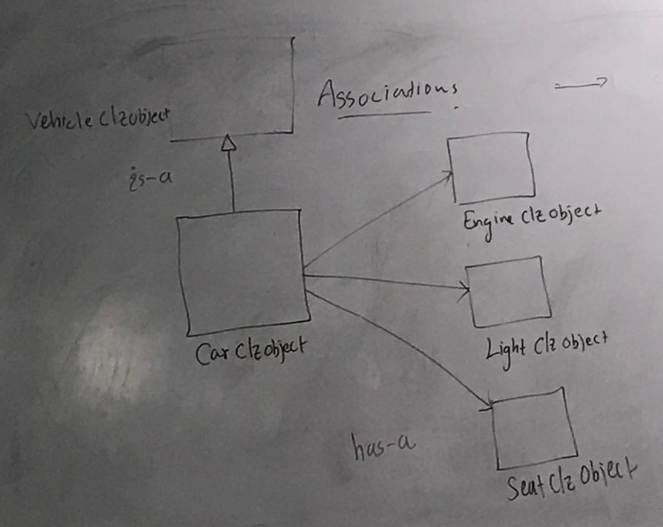 Associations
Vehicle Clzobject
is-a
Engine Clzobject
Car Clzobject
Light Clz object
has-a
Seat Clz Object